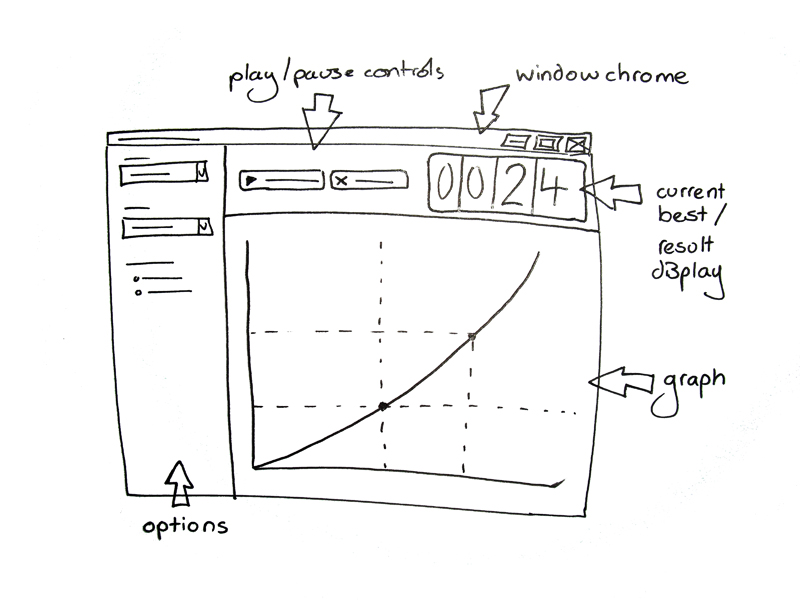 play/pause controls
window chrome
0024
current
best/
result
display
graph
options